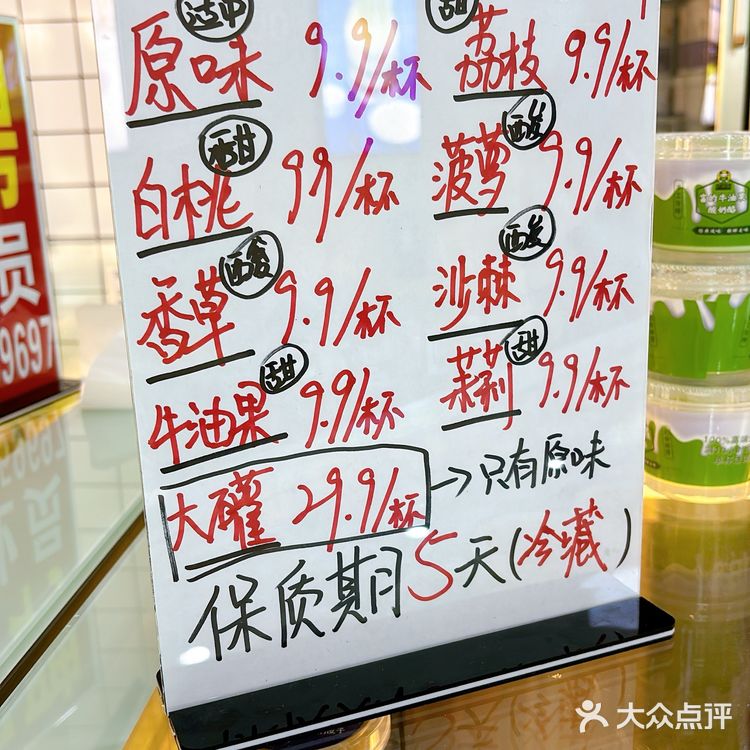 适中
甜
原味 9.9/杯 荔枝 9.9/杯
甜 酸
白桃 9.9/杯 菠萝 9.9/杯
酸 酸
香草 9.9/杯 沙棘 9.9/杯
甜 甜
牛油果 9.9/杯 茉莉 9.9/杯
大罐 29.9/杯 →只有原味
保质期5天(冷藏)
损
9697
牛油果
酸奶酪
100%
大众点评